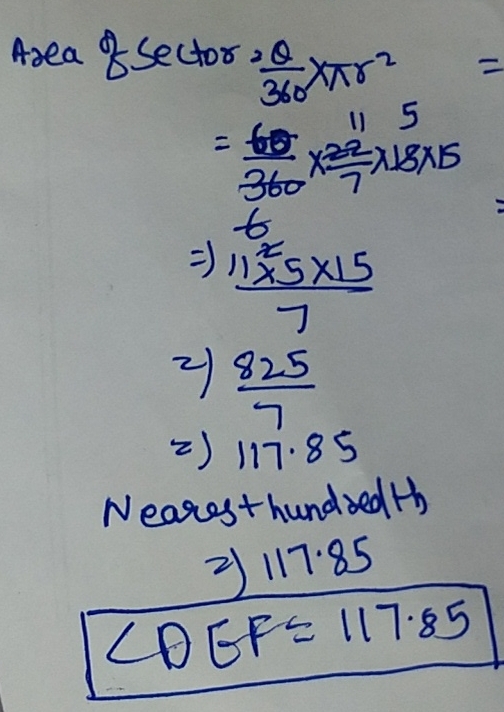 Area of Sector = θ/360 × πr² =
11 5
= 60/360 × 22/7 × 15 × 15 =
6
2
=) 11 × 5 × 15 / 7
=) 825 / 7
=) 117.85
Nearest hundredth
=) 117.85
∠DEF = 117.85